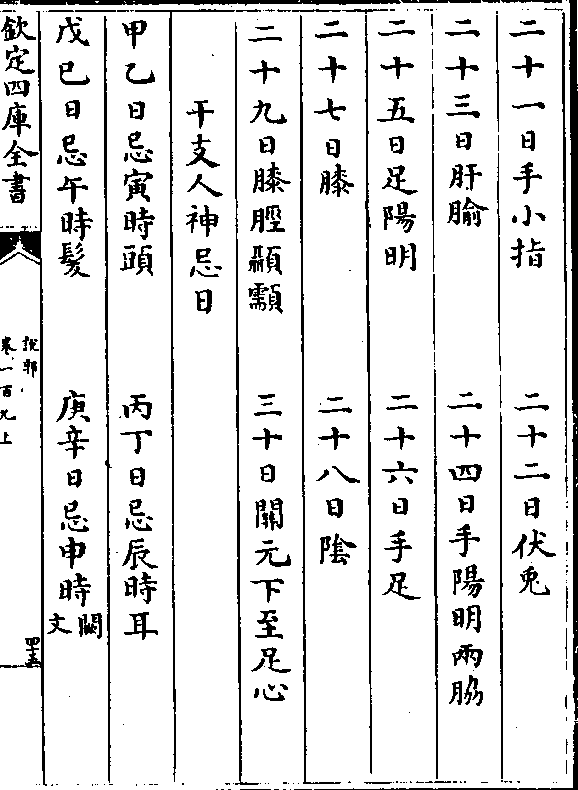 二十一日手小指 二十二日伏兎
二十三日肝腧 二十四日手陽明兩脇
二十五日足陽明 二十六日手足
二十七日膝 二十八日陰
二十九日膝脛顳顬 三十日關元下至足心
干支人神忌日
甲乙日忌寅時頭 丙丁日忌辰時耳
戊巳日忌午時髮 庚辛日忌申時闕文
欽定四庫全書
說郛
卷一百九上
四十五